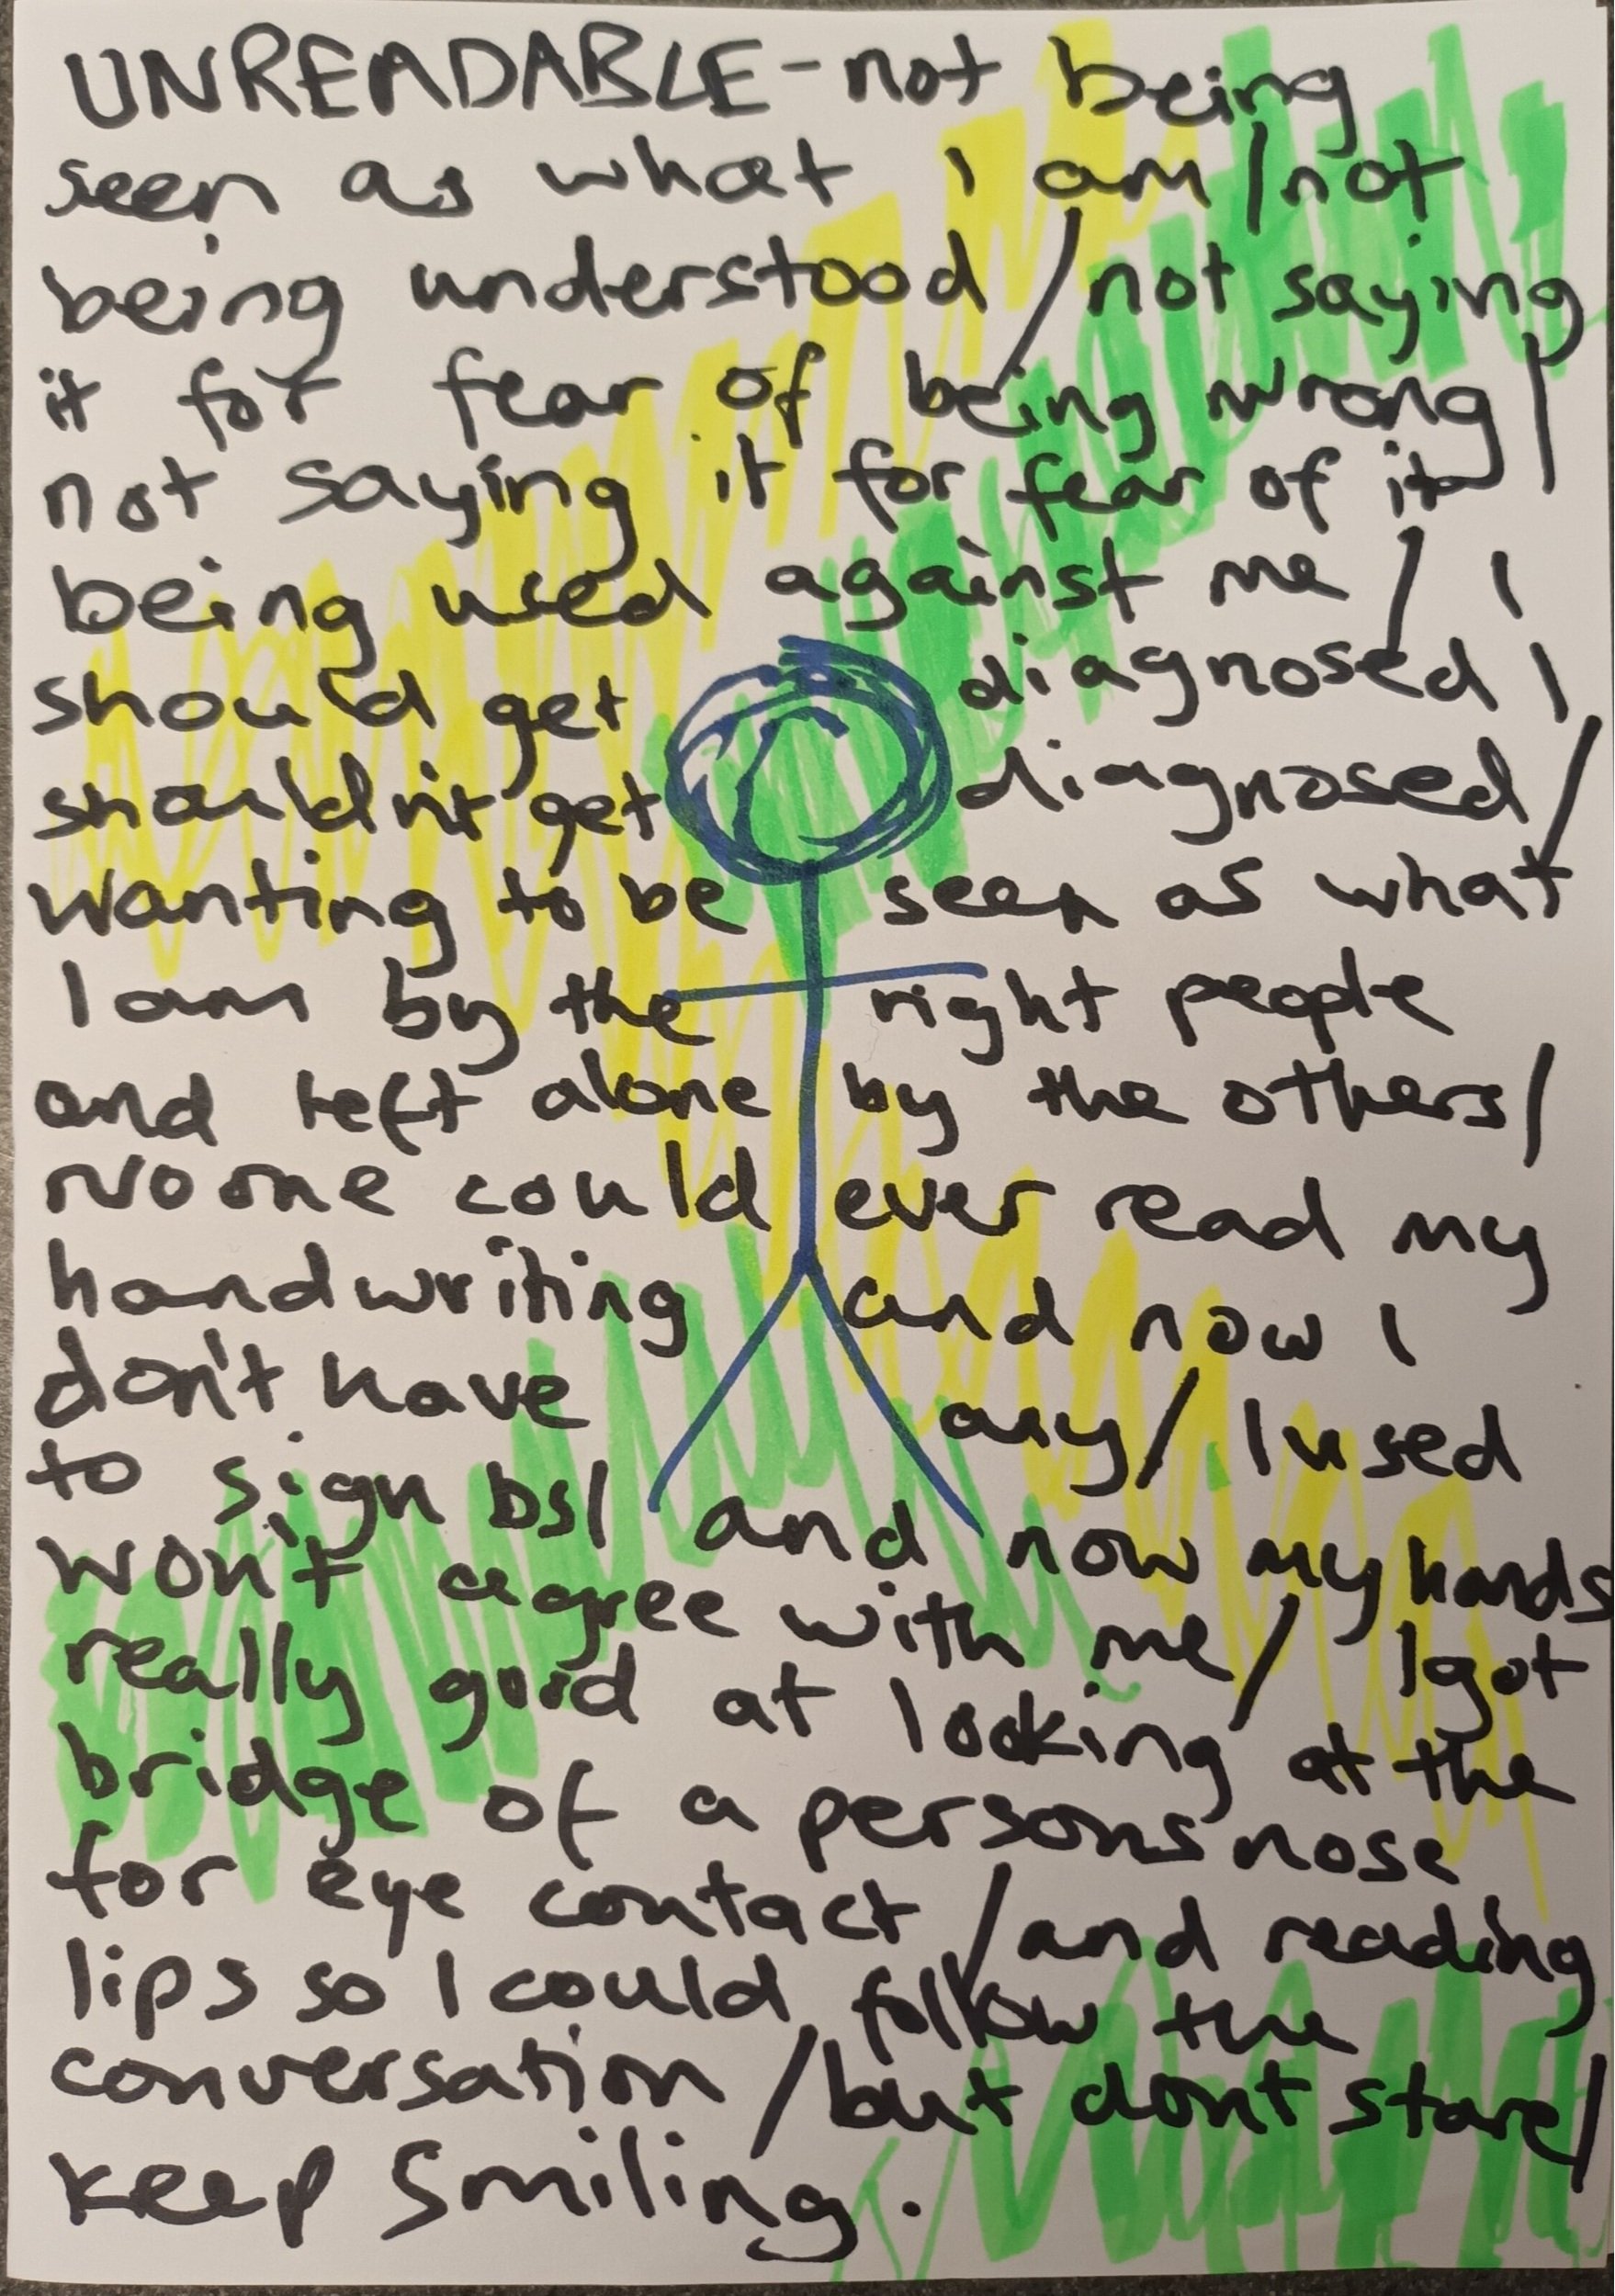 UNREADABLE - not being
seen as what I am / not
being understood / not saying
it for fear of being wrong /
not saying it for fear of it
being used against me / I
should get diagnosed I
shouldn't get diagnosed /
wanting to be seen as what
I am by the right people
and left alone by the others /
No one could ever read my
handwriting and now I
don't have any / I used
to sign bsl and now my hands
won't agree with me / I got
really good at looking at the
bridge of a persons nose
for eye contact / and reading
lips so I could follow the
conversation / but dont stare /
keep smiling.